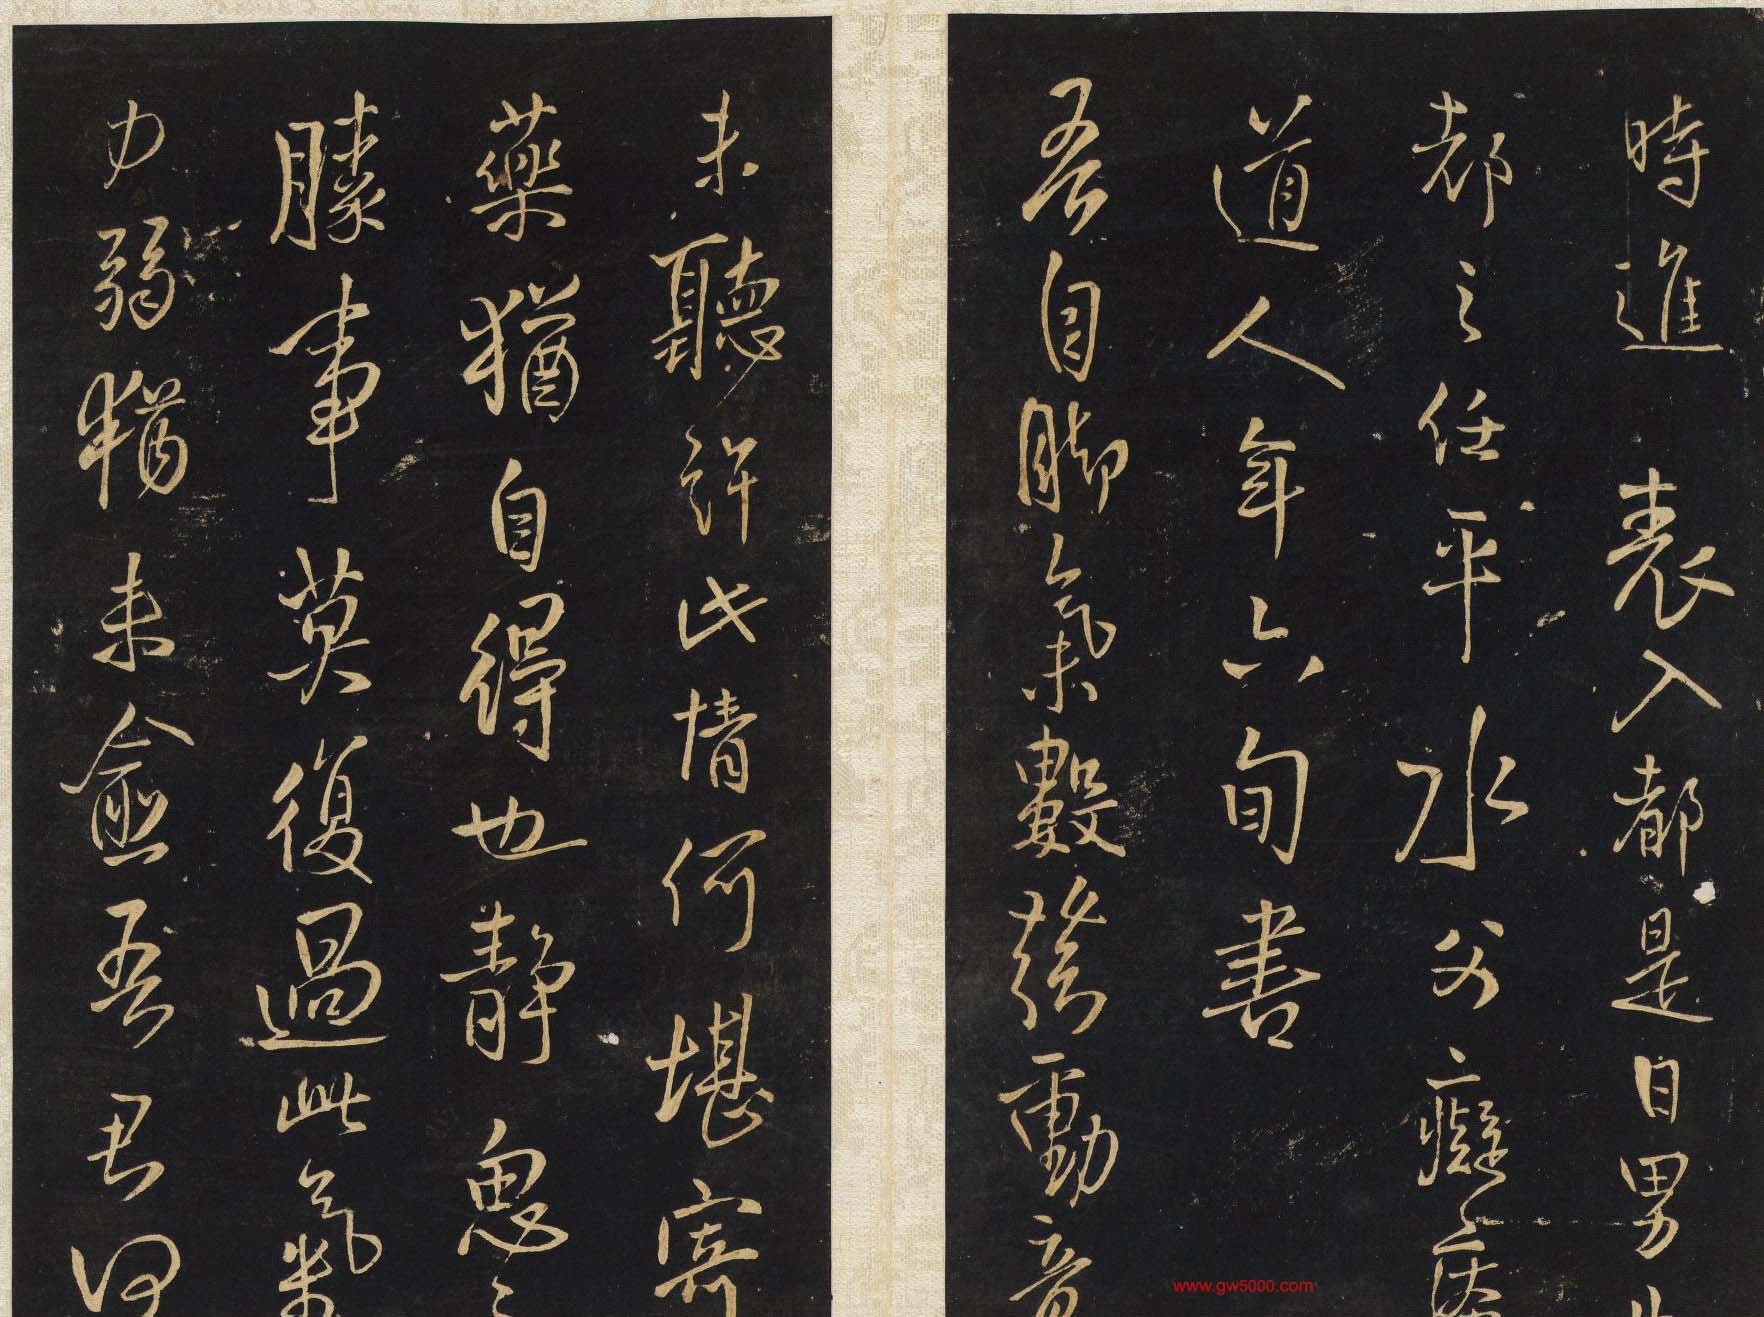 時進 表入都是日男
都之任平水父癡
道人年六旬書
吾自脚氣數發動
未聽許此情何堪
藥猶自得也静思之
勝事莫復過此氣
力弱猶未愈吾君何
www.gw5000.com